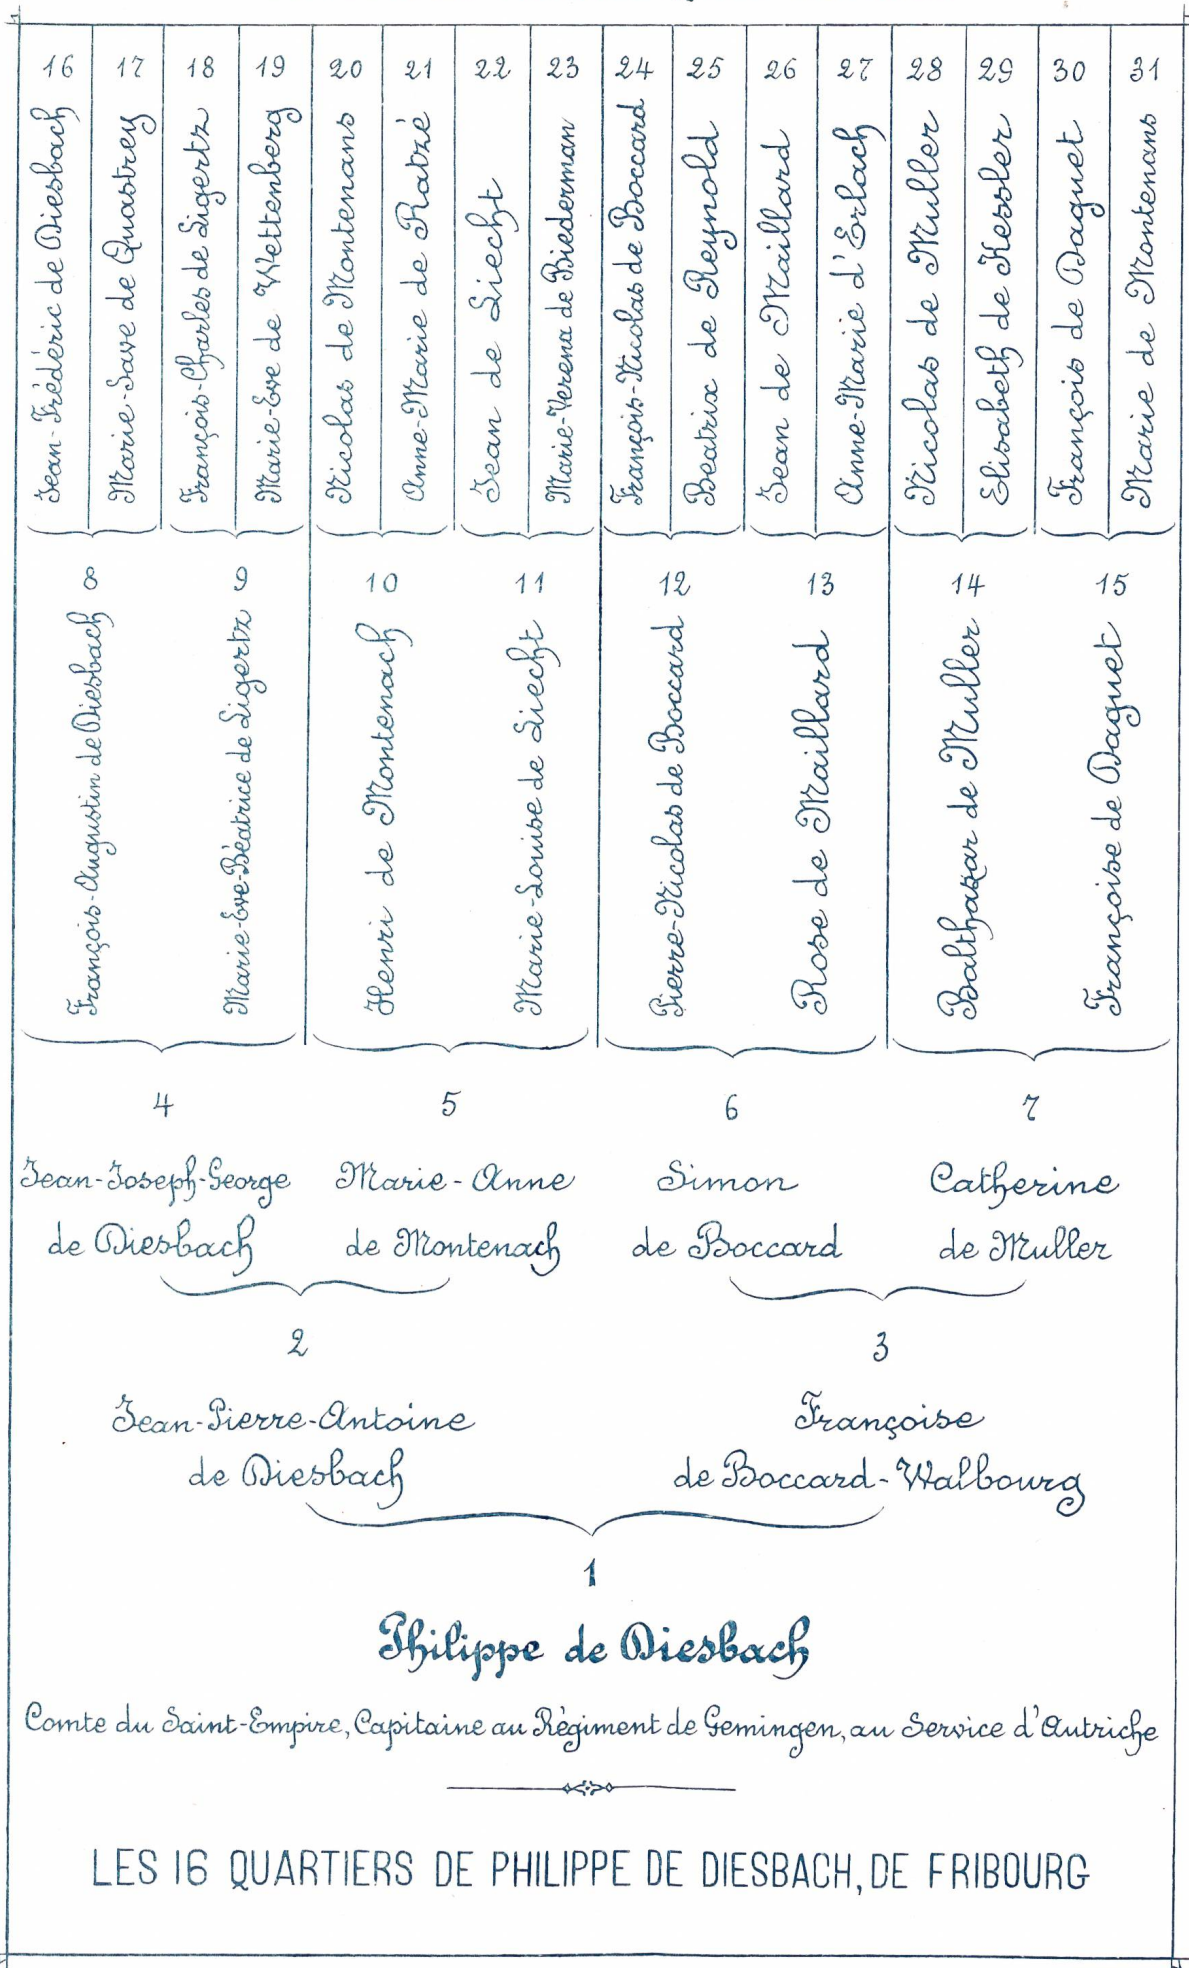 16 17 18 19 20 21 22 23 24 25 26 27 28 29 30 31
Jean-Frédéric de Diesbach
Marie-Save de Quastrey
François-Charles de Ligertz
Marie-Eve de Wettenberg
Nicolas de Montenans
Anne-Marie de Ratzé
Jean de Liecht
Marie-Verena de Biederman
François-Nicolas de Boccard
Beatrix de Reynold
Jean de Maillard
Anne-Marie d'Erlach
Nicolas de Muller
Elisabeth de Kessler
François de Daguet
Marie de Montenans
8 9 10 11 12 13 14 15
François-Augustin de Diesbach
Marie-Eve-Béatrice de Ligertz
Henri de Montenach
Marie-Louise de Liecht
Pierre-Nicolas de Boccard
Rose de Maillard
Balthazar de Muller
Françoise de Daguet
4 5 6 7
Jean-Joseph-George
de Diesbach
Marie-Anne
de Montenach
Simon
de Boccard
Catherine
de Muller
2 3
Jean-Pierre-Antoine
de Diesbach
Françoise
de Boccard-Walbourg
1
Philippe de Diesbach
Comte du Saint-Empire, Capitaine au Régiment de Gemingen, au Service d'Autriche
LES 16 QUARTIERS DE PHILIPPE DE DIESBACH, DE FRIBOURG